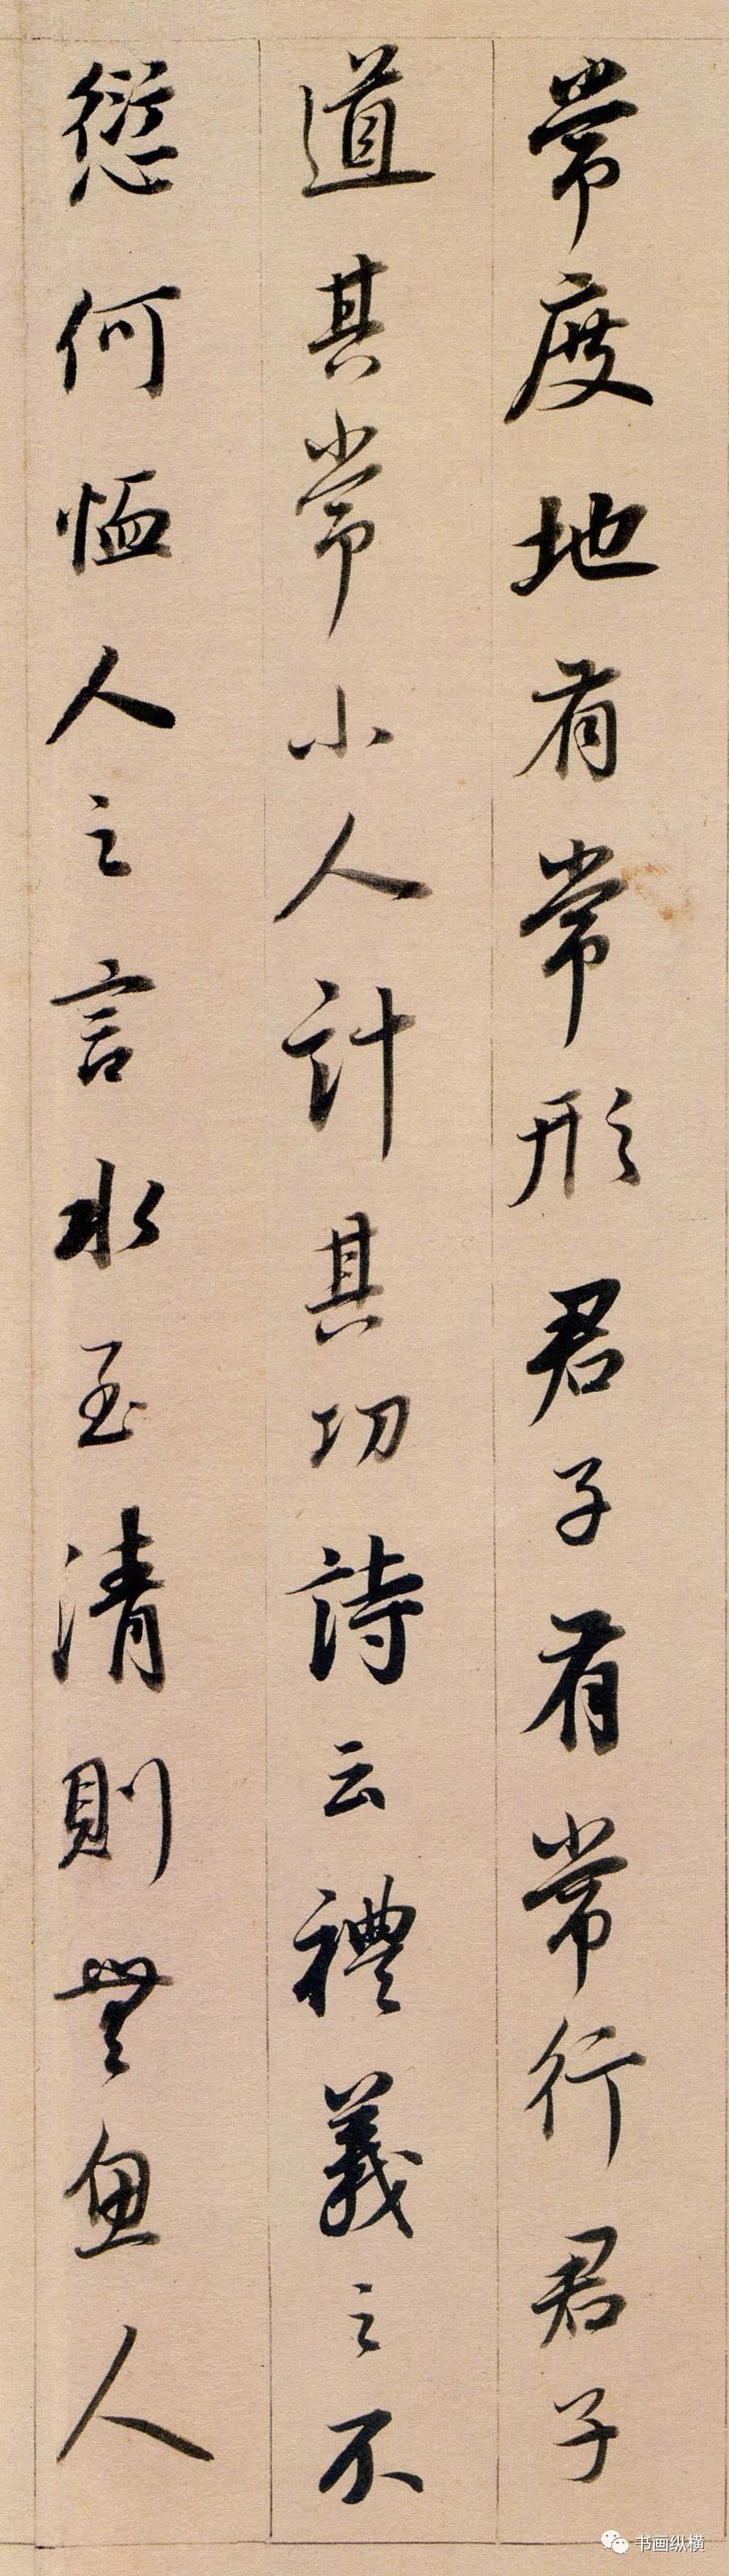 常度地有常形君子有常行君子
道其常小人計其功詩云禮義之不
愆何恤人之言水至清則無魚人
书画纵横